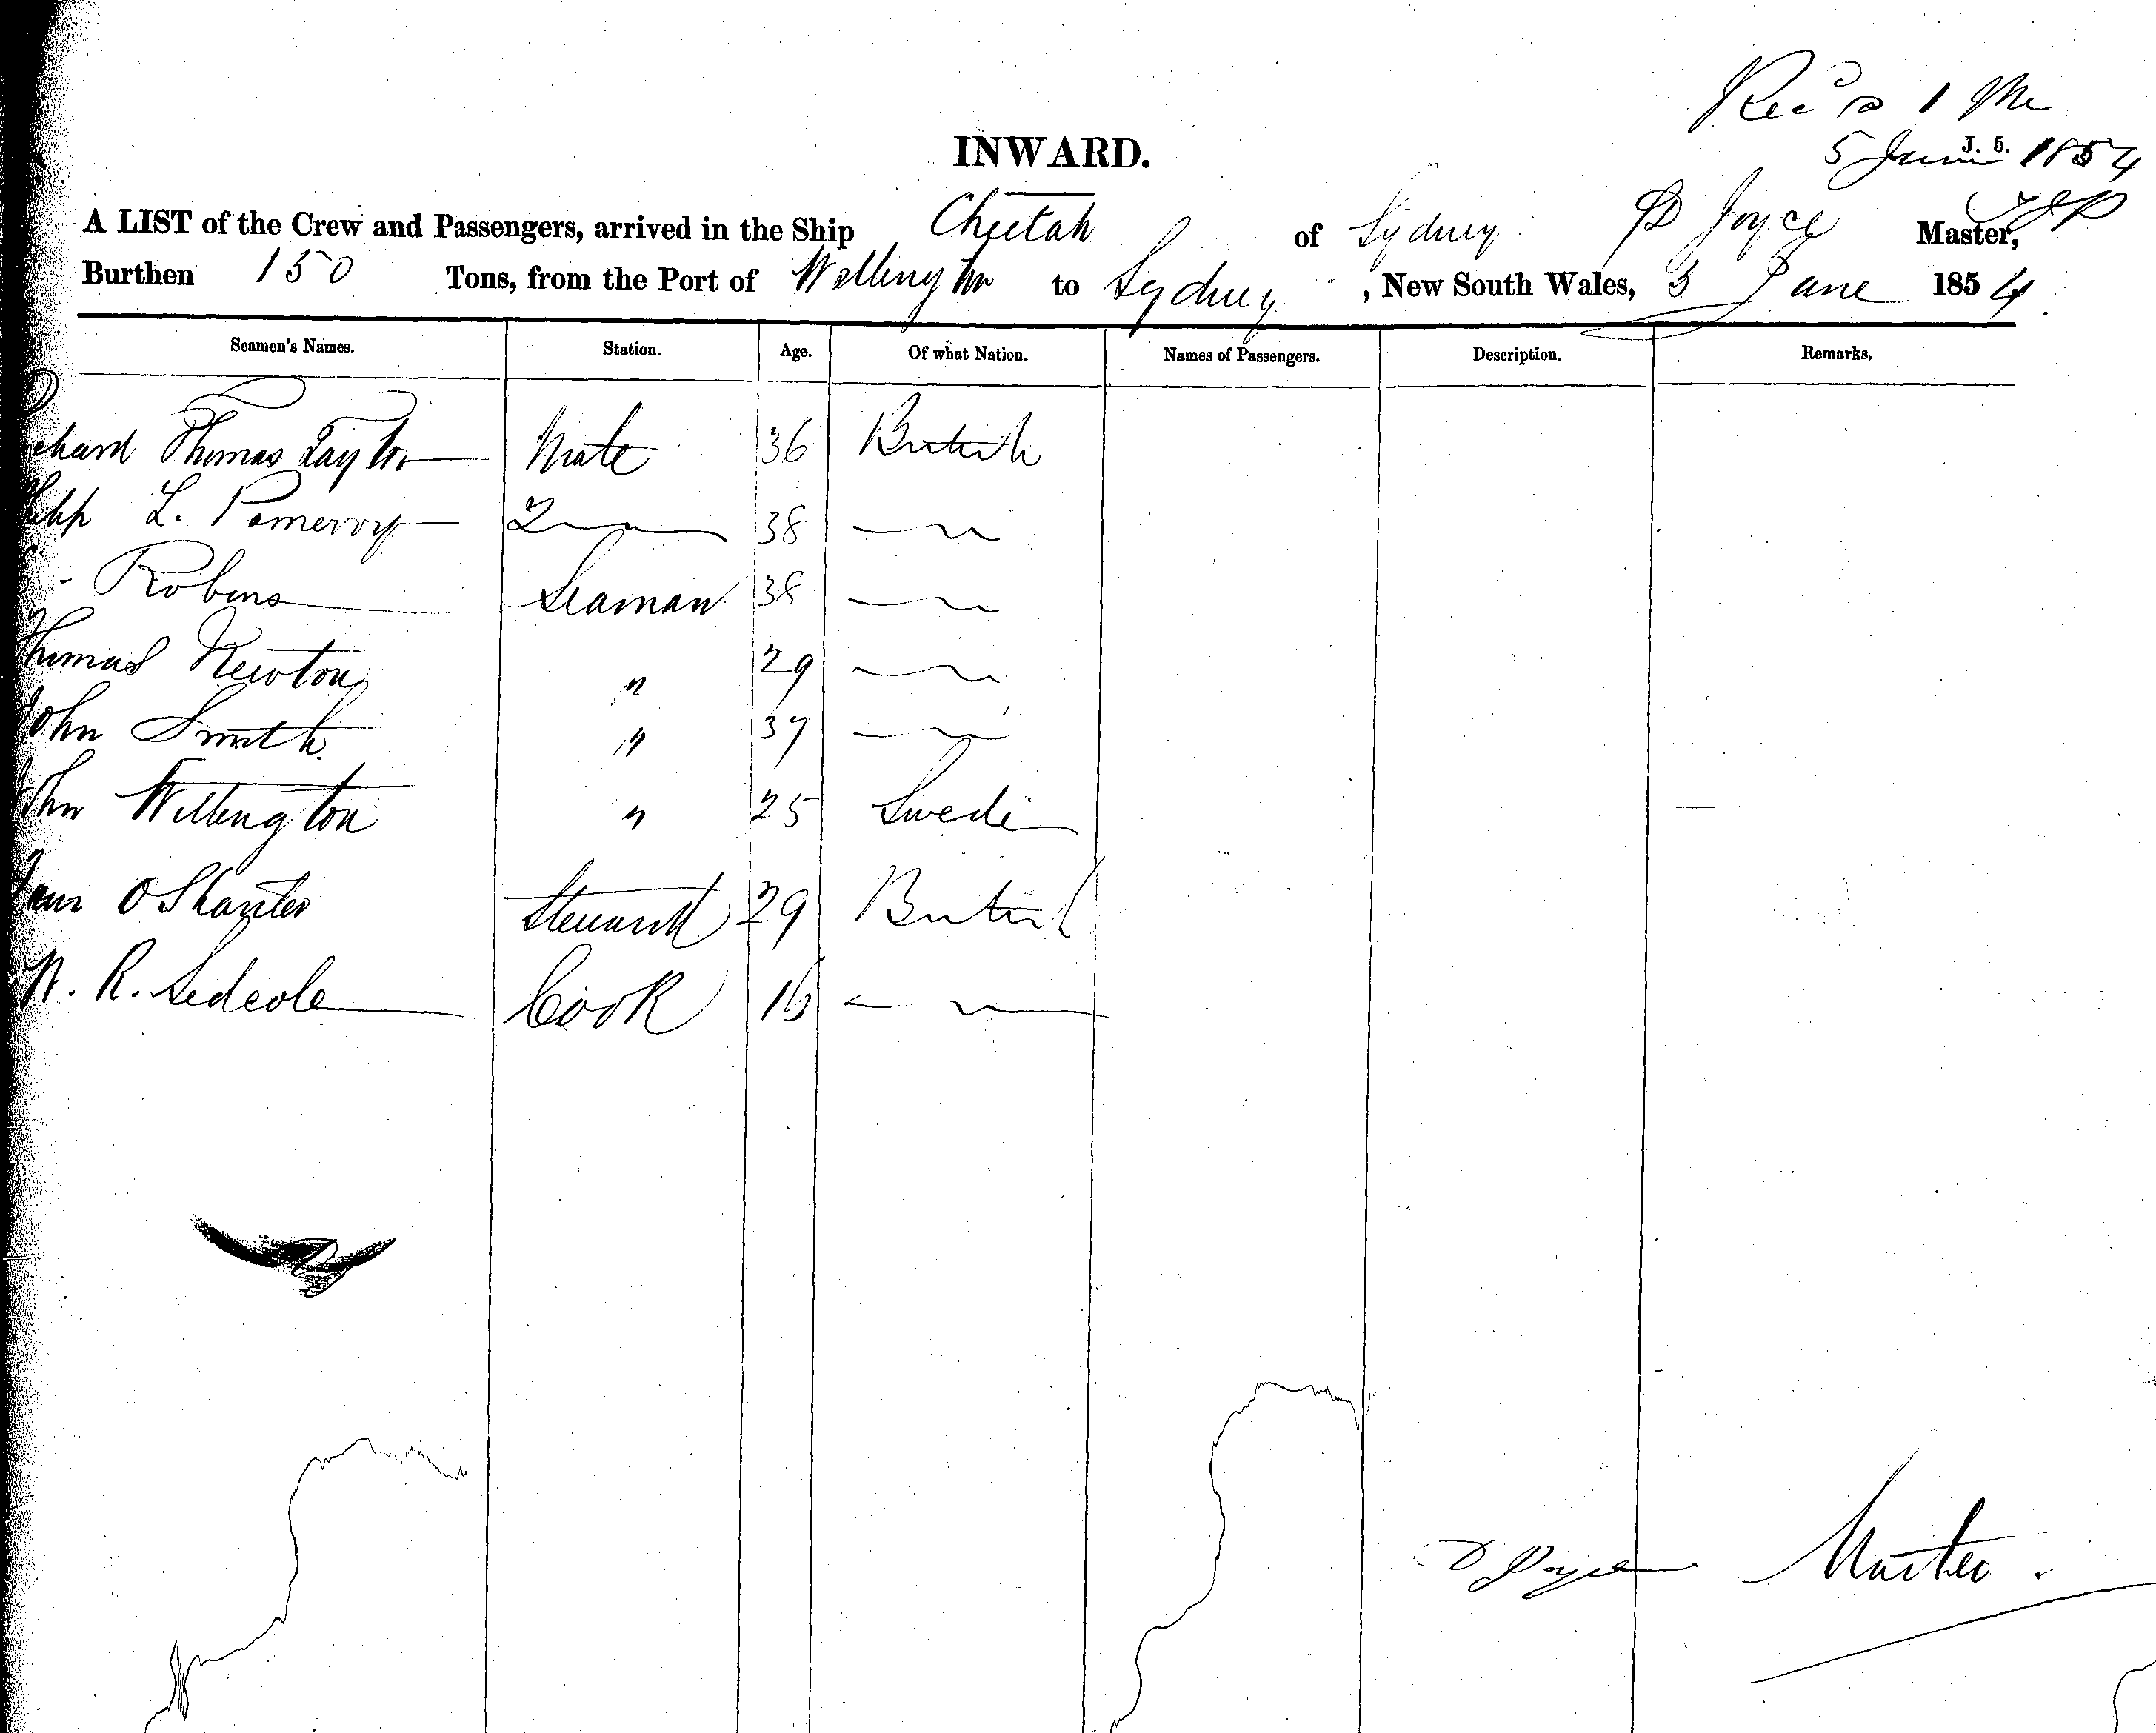 Rec'd 1 PM
J. 5.
5 June 1854
INWARD.
A LIST of the Crew and Passengers, arrived in the Ship Cheetah of Sydney D Joyce Master,
Burthen 150 Tons, from the Port of Wellington to Sydney, New South Wales, 5 June 1854.
Seamen's Names. Station. Age. Of what Nation. Names of Passengers. Description. Remarks.
Richard Thomas Taylor Mate 36 British
L. Pomerroy 2 38 "
Robins Seaman 38 "
Thomas Newton " 29 "
John Smith " 37 "
John Wellington " 25 Swede
O Shanter Steward 29 British
W. R. Sedcole Cook 16 "
D Joyce Master.